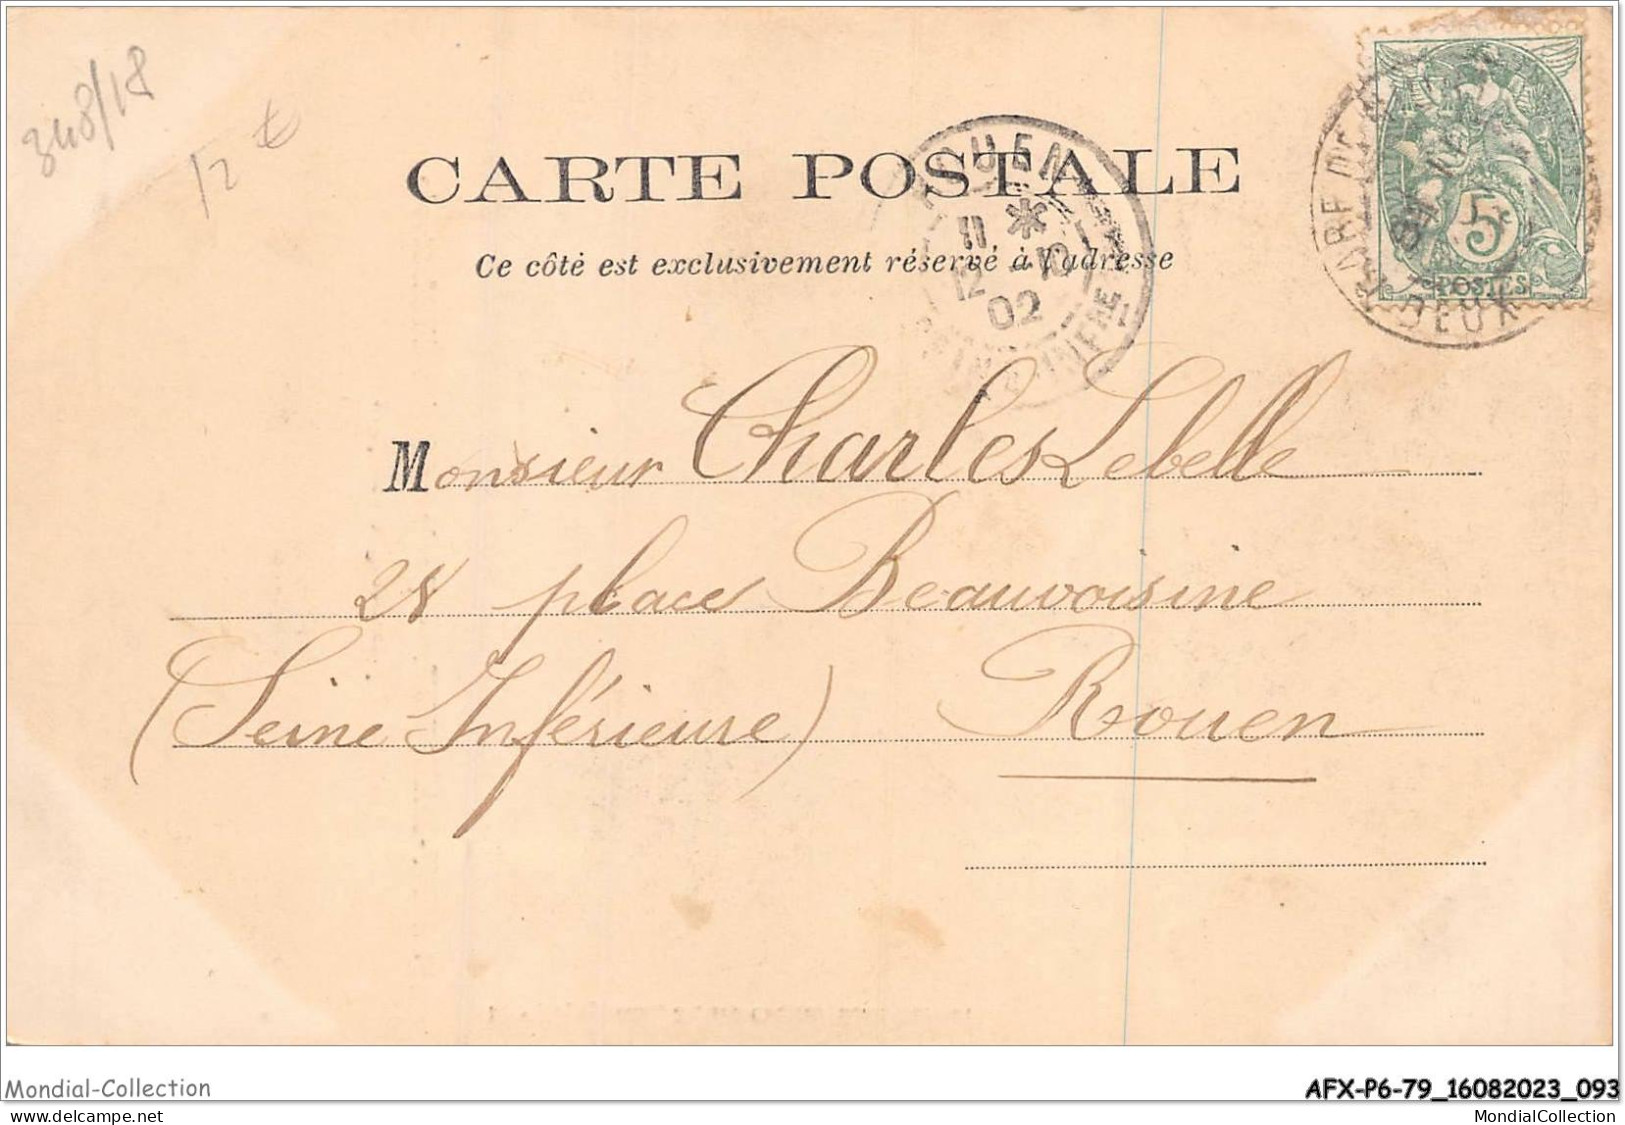 348/18
12 €
CARTE POSTALE
Ce côté est exclusivement réservé à l'adresse
ROUEN
11 *
12 -12
02
INFRE
GARE DE
DEUX
5c
5
POSTES
Monsieur Charles Lebelle
28 place Beauvoisine
(Seine Inférieure) Rouen
Mondial-Collection
AFX-P6-79_16082023_093
www.delcampe.net
MondialCollection